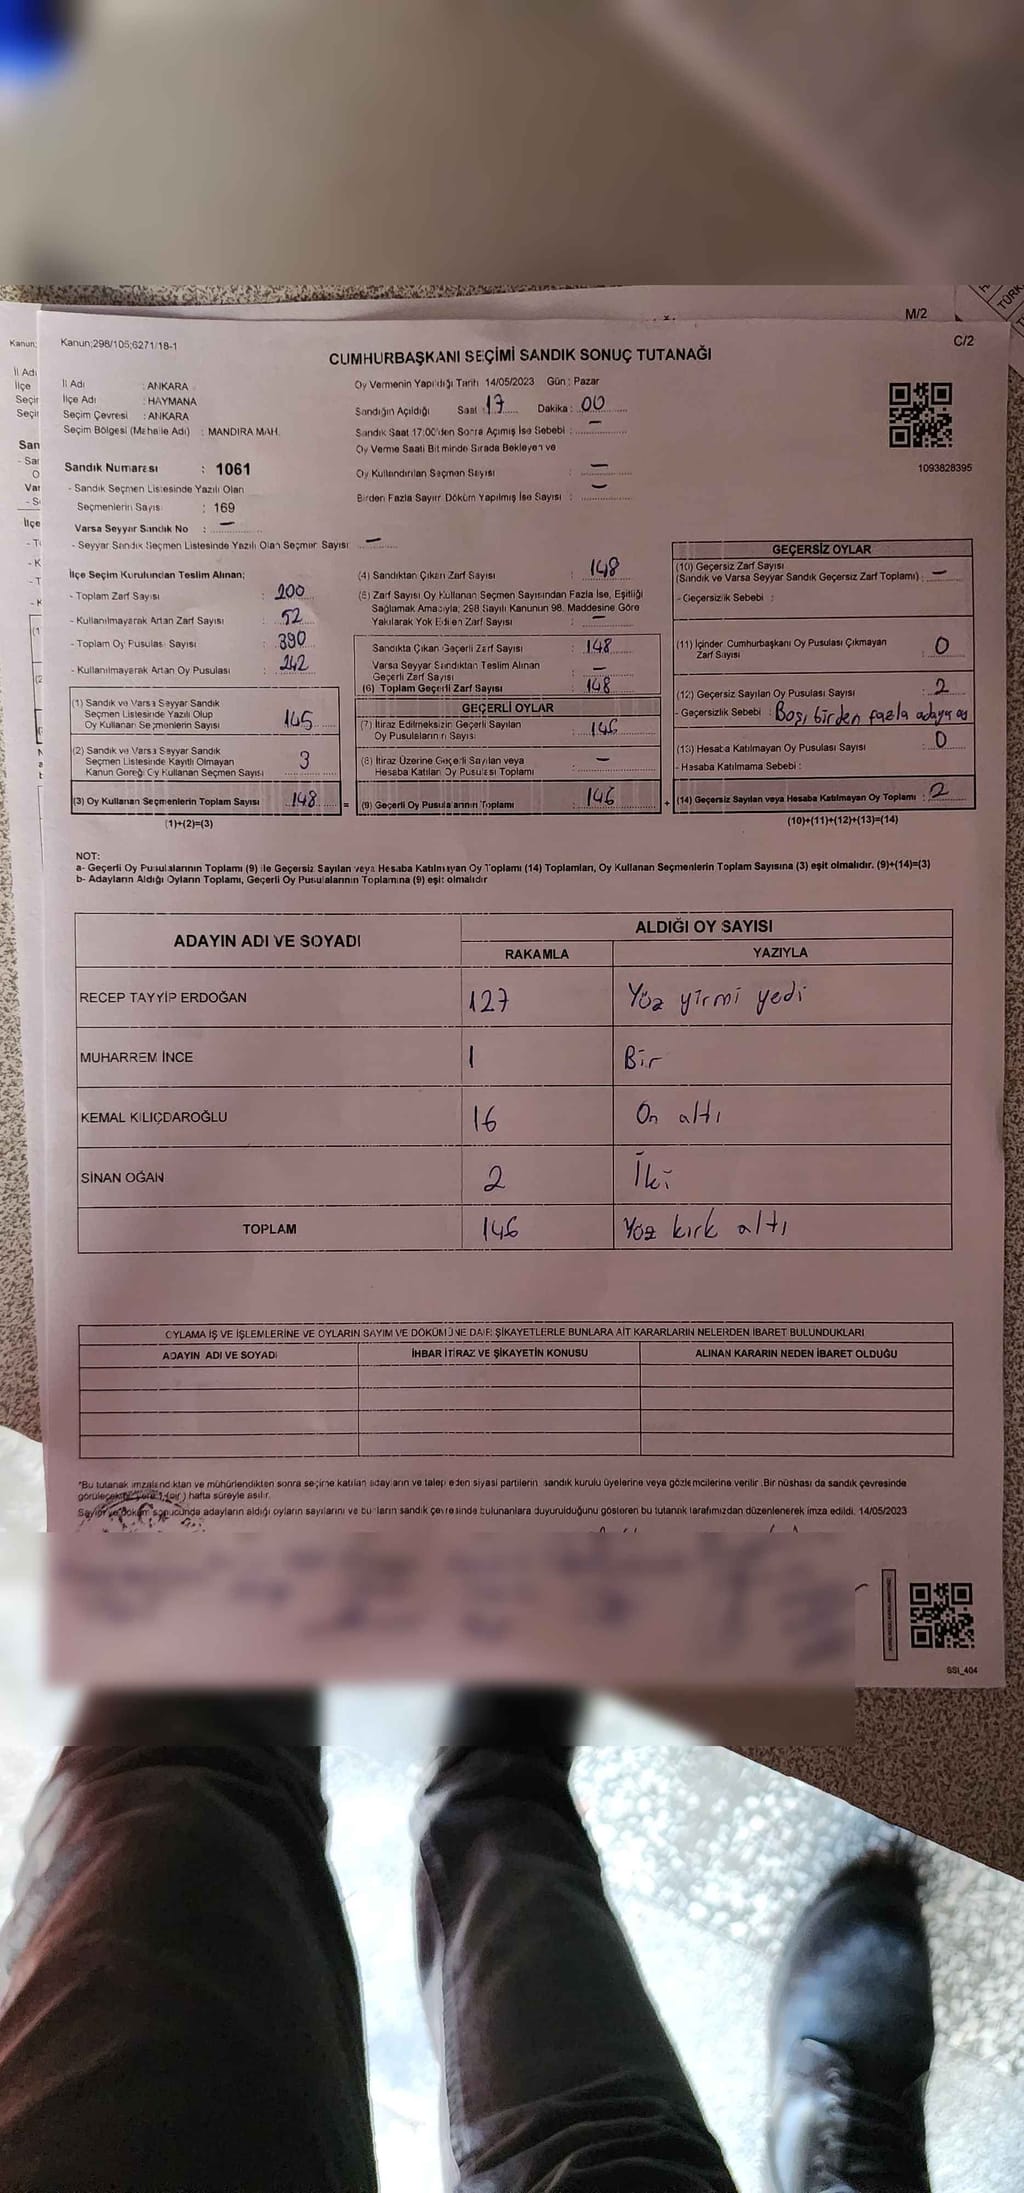 M/2
TÜRK
Kanun;
Kanun;298/105;6271/18-1
C/2
CUMHURBAŞKANI SEÇİMİ SANDIK SONUÇ TUTANAĞI
İl Adı : ANKARA
İlçe Adı : HAYMANA
Seçim Çevresi : ANKARA
Seçim Bölgesi (Mahalle Adı) : MANDIRA MAH.
Sandık Numarası : 1061
- Sandık Seçmen Listesinde Yazılı Olan
Seçmenlerin Sayısı : 169
Varsa Seyyar Sandık No : —
- Seyyar Sandık Seçmen Listesinde Yazılı Olan Seçmen Sayısı: —
Oy Vermenin Yapıldığı Tarih 14/05/2023 Gün : Pazar
Sandığın Açıldığı Saat 17 Dakika : 00
Sandık Saat 17:00'den Sonra Açılmış İse Sebebi : —
Oy Verme Saati Bitiminde Sırada Bekleyen ve
Oy Kullandırılan Seçmen Sayısı : —
Birden Fazla Sayım Döküm Yapılmış İse Sayısı : —
1093828395
İlçe Seçim Kurulundan Teslim Alınan;
- Toplam Zarf Sayısı : 200
- Kullanılmayarak Artan Zarf Sayısı : 52
- Toplam Oy Pusulası Sayısı : 390
- Kullanılmayarak Artan Oy Pusulası : 242
(1) Sandık ve Varsa Seyyar Sandık
Seçmen Listesinde Yazılı Olup
Oy Kullanan Seçmenlerin Sayısı : 145
(2) Sandık ve Varsa Seyyar Sandık
Seçmen Listesinde Kayıtlı Olmayan
Kanun Gereği Oy Kullanan Seçmen Sayısı : 3
(3) Oy Kullanan Seçmenlerin Toplam Sayısı : 148 =
(1)+(2)=(3)
(4) Sandıktan Çıkan Zarf Sayısı : 148
(5) Zarf Sayısı Oy Kullanan Seçmen Sayısından Fazla İse, Eşitliği
Sağlamak Amacıyla; 298 Sayılı Kanunun 98. Maddesine Göre
Yakılarak Yok Edilen Zarf Sayısı : —
Sandıkta Çıkan Geçerli Zarf Sayısı : 148
Varsa Seyyar Sandıktan Teslim Alınan
Geçerli Zarf Sayısı : —
(6) Toplam Geçerli Zarf Sayısı : 148
GEÇERLİ OYLAR
(7) İtiraz Edilmeksizin Geçerli Sayılan
Oy Pusulalarının Sayısı : 146
(8) İtiraz Üzerine Geçerli Sayılan veya
Hesaba Katılan Oy Pusulası Toplamı : —
(9) Geçerli Oy Pusulalarının Toplamı : 146 +
GEÇERSİZ OYLAR
(10) Geçersiz Zarf Sayısı
(Sandık ve Varsa Seyyar Sandık Geçersiz Zarf Toplamı) : —
- Geçersizlik Sebebi :
(11) İçinden Cumhurbaşkanı Oy Pusulası Çıkmayan
Zarf Sayısı : 0
(12) Geçersiz Sayılan Oy Pusulası Sayısı : 2
- Geçersizlik Sebebi : Boş, birden fazla adaya oy
(13) Hesaba Katılmayan Oy Pusulası Sayısı : 0
- Hesaba Katılmama Sebebi :
(14) Geçersiz Sayılan veya Hesaba Katılmayan Oy Toplamı : 2
(10)+(11)+(12)+(13)=(14)
NOT:
a- Geçerli Oy Pusulalarının Toplamı (9) ile Geçersiz Sayılan veya Hesaba Katılmayan Oy Toplamı (14) Toplamları, Oy Kullanan Seçmenlerin Toplam Sayısına (3) eşit olmalıdır. (9)+(14)=(3)
b- Adayların Aldığı Oyların Toplamı, Geçerli Oy Pusulalarının Toplamına (9) eşit olmalıdır
ADAYIN ADI VE SOYADI
ALDIĞI OY SAYISI
RAKAMLA YAZIYLA
RECEP TAYYİP ERDOĞAN 127 Yüz yirmi yedi
MUHARREM İNCE 1 Bir
KEMAL KILIÇDAROĞLU 16 On altı
SİNAN OĞAN 2 İki
TOPLAM 146 Yüz kırk altı
OYLAMA İŞ VE İŞLEMLERİNE VE OYLARIN SAYIM VE DÖKÜMÜNE DAİR ŞİKAYETLERLE BUNLARA AİT KARARLARIN NELERDEN İBARET BULUNDUKLARI
ADAYIN ADI VE SOYADI İHBAR İTİRAZ VE ŞİKAYETİN KONUSU ALINAN KARARIN NEDEN İBARET OLDUĞU
*Bu tutanak imzalandıktan ve mühürlendikten sonra seçime katılan adayların ve talep eden siyasi partilerin sandık kurulu üyelerine veya gözlemcilerine verilir. Bir nüshası da sandık çevresinde
görülecek bir yere 1 (bir) hafta süreyle asılır.
Sayım ve döküm sonucunda adayların aldığı oyların sayılarını ve bunların sandık çevresinde bulunanlara duyurulduğunu gösteren bu tutanak tarafımızdan düzenlenerek imza edildi. 14/05/2023
SSI_404